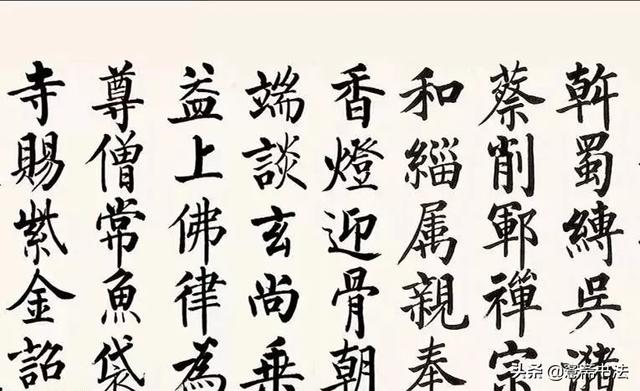 斡蜀縛吳瀦
蔡削鄆禪宗
和緇属親奉
香燈迎骨朝
端談玄尚乗
益上佛律為
尊僧常魚袋
寺賜紫金詔
头条 @书法